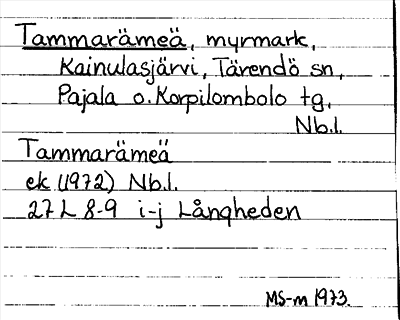 Tammarämeä, myrmark,
Kainulasjärvi, Tärendö sn,
Pajala o. Korpilombolo tg,
Nb.l.
Tammarämeä
ek (1972) Nb.l.
27 L 8-9 i-j Långheden
MS-m 1973.